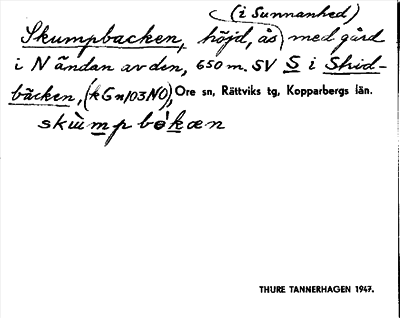 (i Sunnanhed)
Skumpbacken, höjd, ås) med gård
i N ändan av den, 650 m. SV S i Skid-
bäcken, (kGn103NO), Ore sn, Rättviks tg, Kopparbergs län.
THURE TANNERHAGEN 1947.